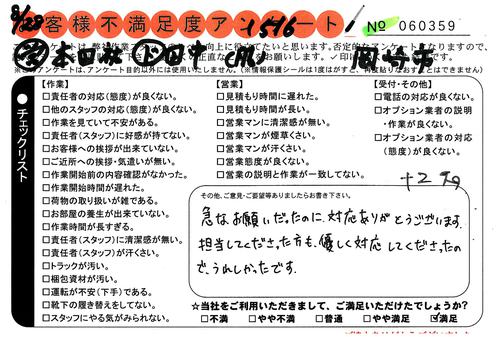 8/28 お客様不満足度アンケート! 1516
№ 060359
岡崎市
●チェックリスト
【作業】
□責任者の対応(態度)が良くない。
□他のスタッフの対応(態度)が良くない。
□作業を見ていて不安がある。
□責任者(スタッフ)に好感が持てない。
□お客様への挨拶が出来ていない。
□ご近所への挨拶・気遣いが無い。
□作業開始前の内容確認がなかった。
□作業開始時間が遅れた。
□荷物の取り扱いが雑である。
□お部屋の養生が出来ていない。
□作業時間が長すぎる。
□責任者(スタッフ)に清潔感が無い。
□責任者(スタッフ)が汗くさい。
□トラックが汚い。
□梱包資材が汚い。
□運転が不安(下手)である。
□靴下の履き替えをしてない。
□スタッフにやる気がみられない。
【営業】
□見積もり時間に遅れた。
□見積もり時間が長い。
□営業マンに清潔感が無い。
□営業マンが煙草くさい。
□営業マンが汗くさい。
□営業態度が良くない。
□営業の説明と作業が一致してない。
【受付・その他】
□電話の対応が良くない。
□オプション業者の説明
・作業が良くない。
□オプション業者の対応
(態度)が良くない。
その他、ご意見・ご要望等ありましたらお書き下さい。
急なお願いだったのに、対応ありがとうございます。
担当してくださった方も、優しく対応してくださったの
で、うれしかったです。
☆当社をご利用いただきまして、ご満足いただけたでしょうか?
□不満 □やや不満 □普通 □やや満足 ☑満足